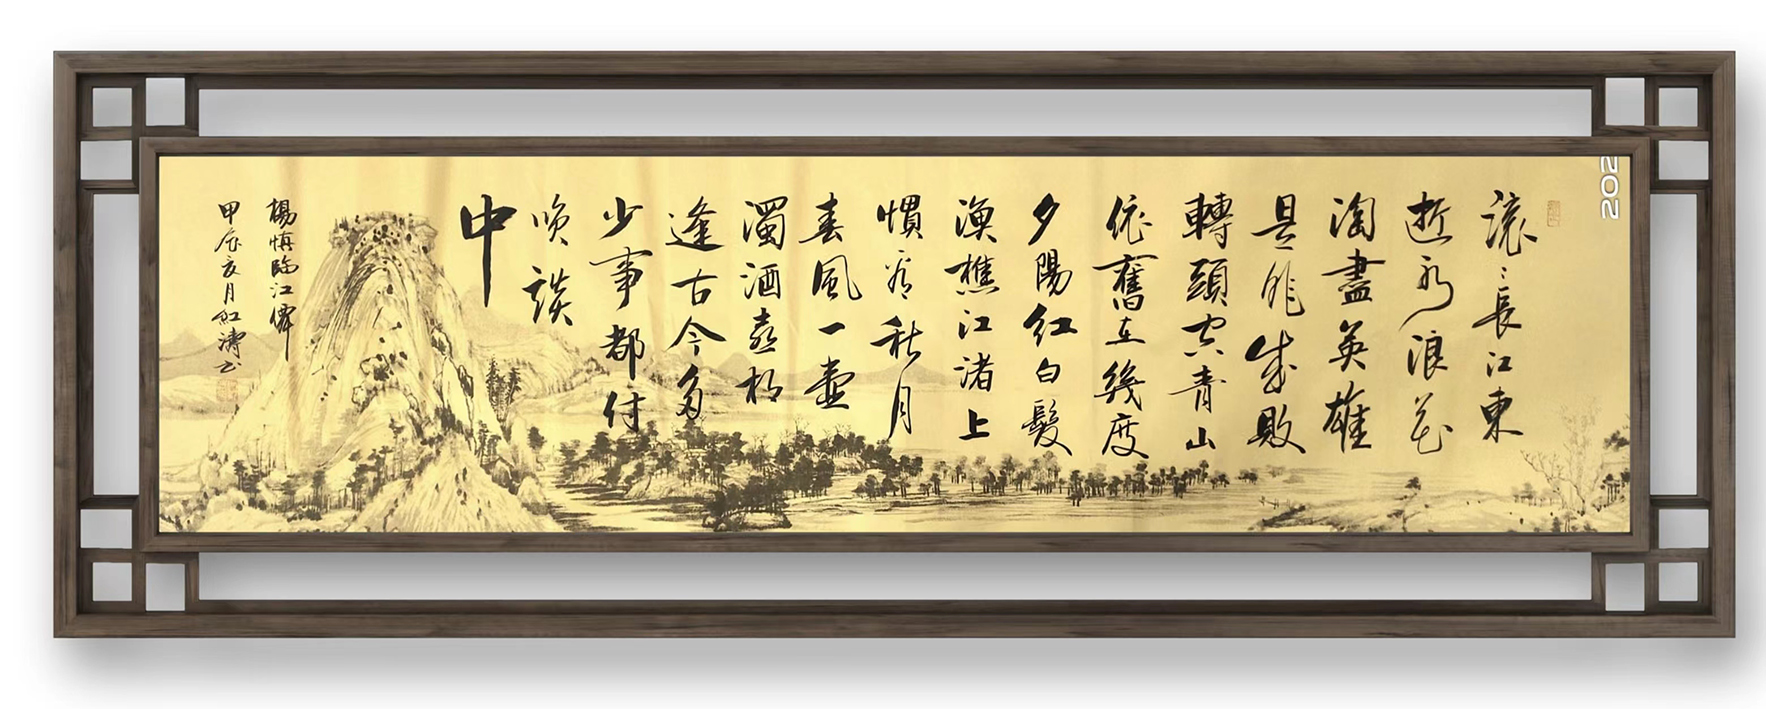 滚〻長江東
逝水浪花
淘盡英雄
是非成敗
轉頭空青山
依舊在幾度
夕陽紅白髮
漁樵江渚上
慣看秋月
春風一壺
濁酒喜相
逢古今多
少事都付
笑談
中
楊慎臨江僊
甲辰亥月紅濤书
202